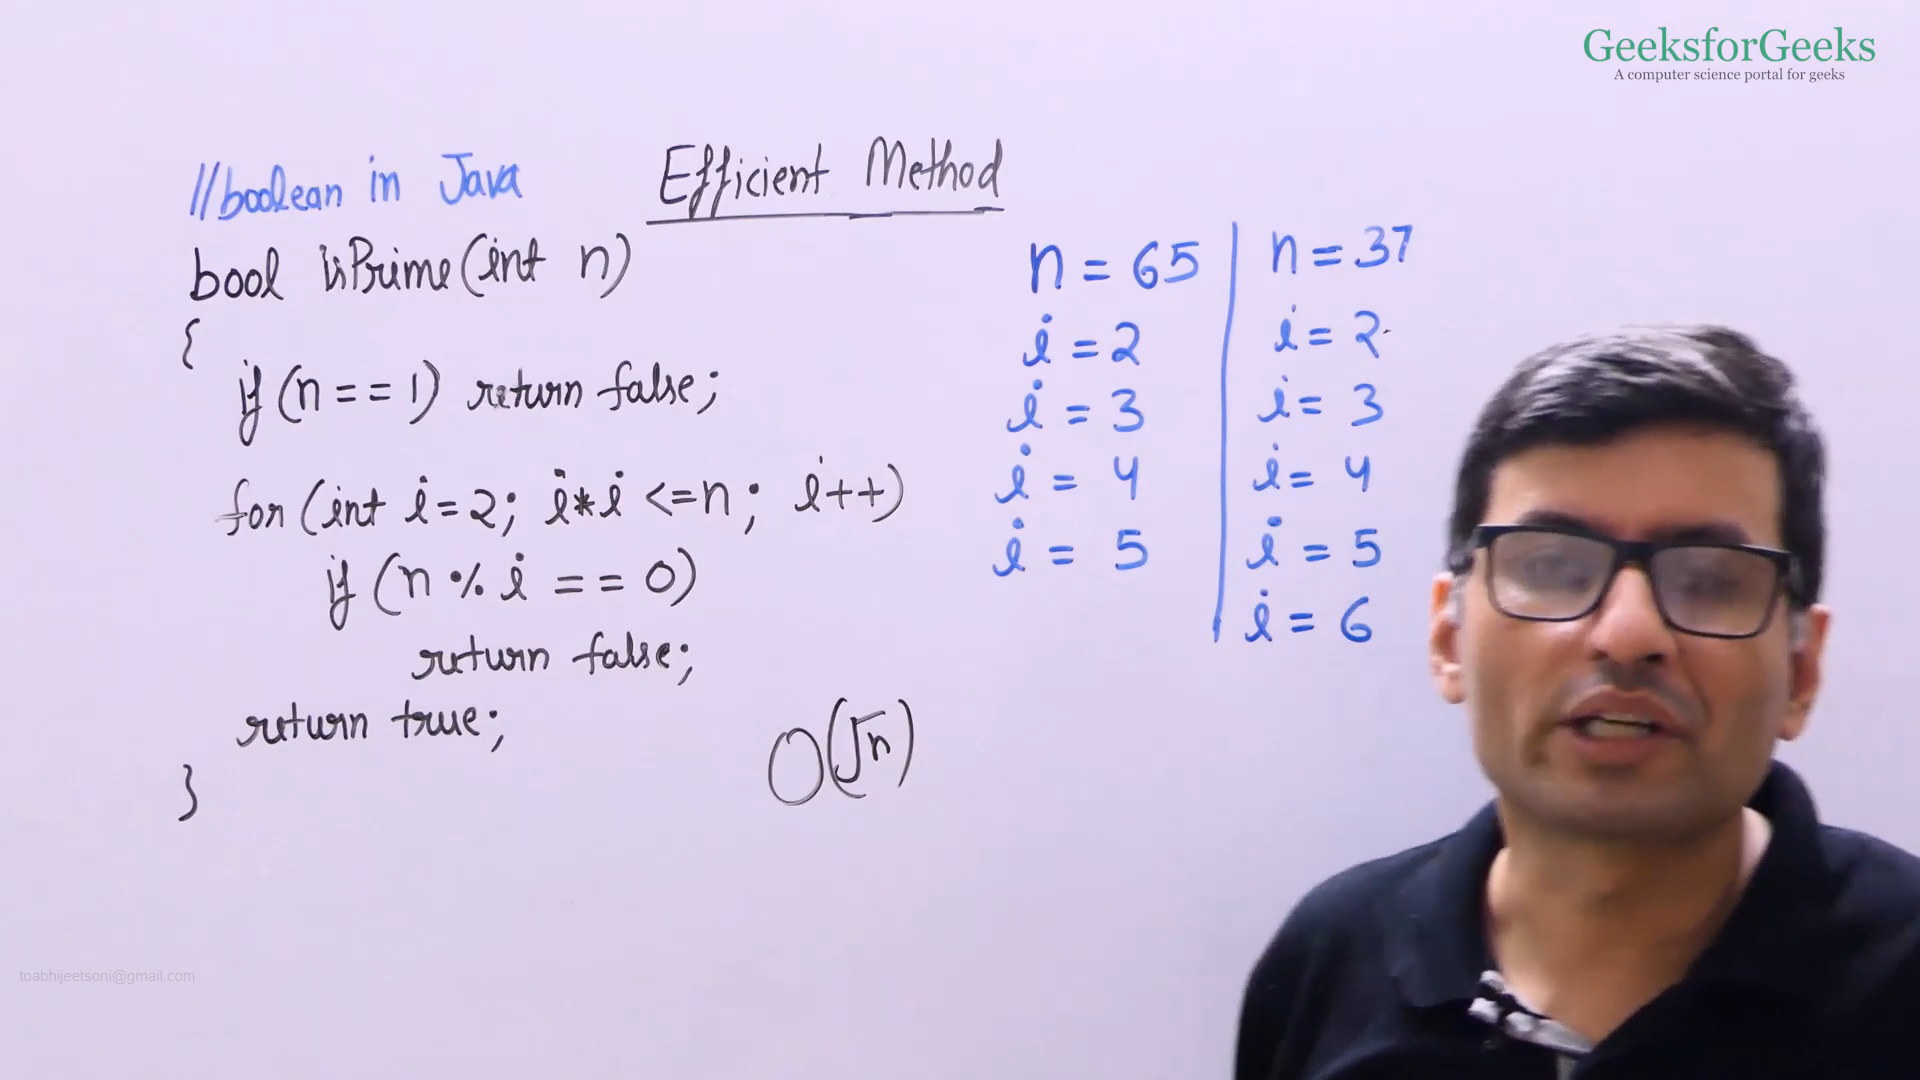 GeeksforGeeks
A computer science portal for geeks
//boolean in Java
Efficient Method
bool isPrime(int n)
{
if (n == 1) return false;
for (int i=2; i*i <=n; i++)
if (n % i == 0)
return false;
return true;
}
O(√n)
n = 65
i = 2
i = 3
i = 4
i = 5
n = 37
i = 2
i = 3
i = 4
i = 5
i = 6
toabhijeetsoni@gmail.com